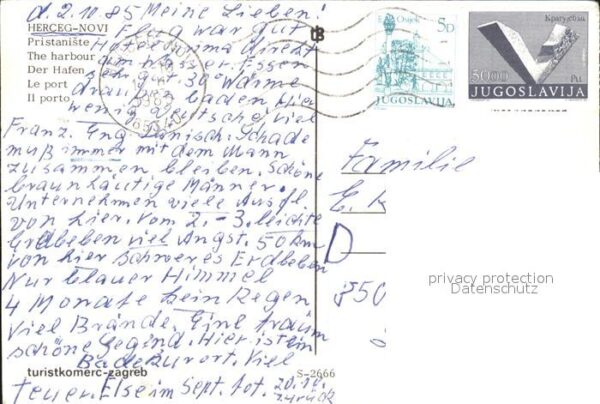 d. 2. 10. 85 Meine Lieben!
HERCEG-NOVI
Pristanište
The harbour
Der Hafen
Le port
Il porto
Flug war gut
Hotel direkt
am Wasser. Essen
sehr gut. 30° Wärme
draußen baden. Hier
wenig Deutsche, viel
Franz. Eng. Schade
muß immer mit dem Mann
zusammen bleiben. Schöne
braunhäutige Männer.
Unternehmen viele Ausfl.
von hier. Vom 2. - 3. leichte
Erdbeben viel Angst. 50 km
von hier schweres Erdbeben
Nur blauer Himmel
4 Monate kein Regen
viel Brände. Eine traum
schöne Gegend. Hier ist ein
Bade Kurort. Viel
teuer. Else im Sept. tot. 20.10.
zurück
turistkomerc-zagreb
S-2666
Osijek
5D
JUGOSLAVIJA
50.00
JUGOSLAVIJA
Familie
E. K
D
850
privacy protection
Datenschutz